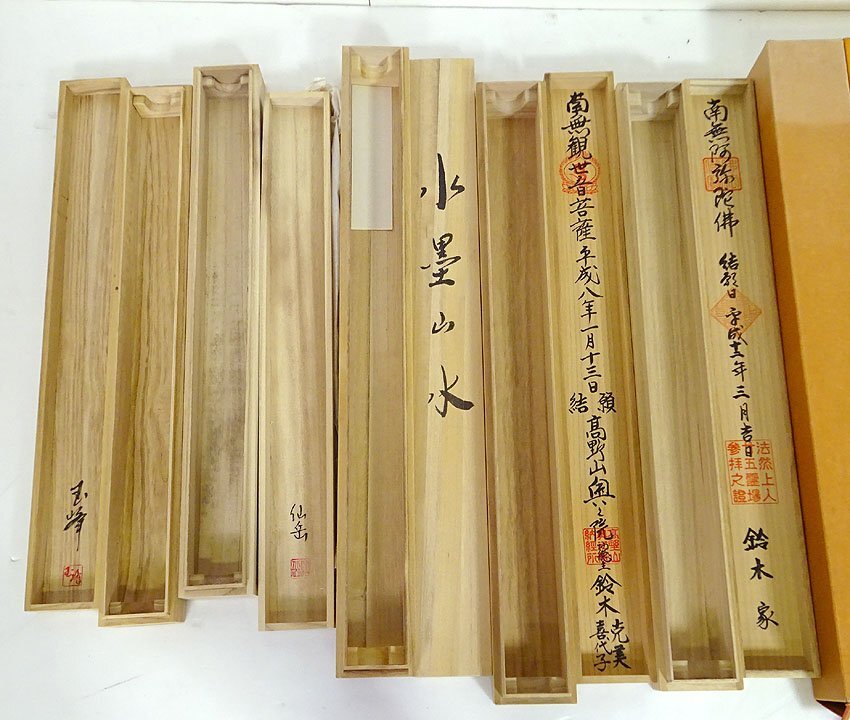 玉峰
仙岳
水墨山水
南無観世音菩薩 平成八年一月十三日
結願
高野山奥之院
鈴木 克美
喜代子
南無阿弥陀佛 結願日 平成十二年三月吉日
法然上人
廿五霊場
参拝之證
鈴木家